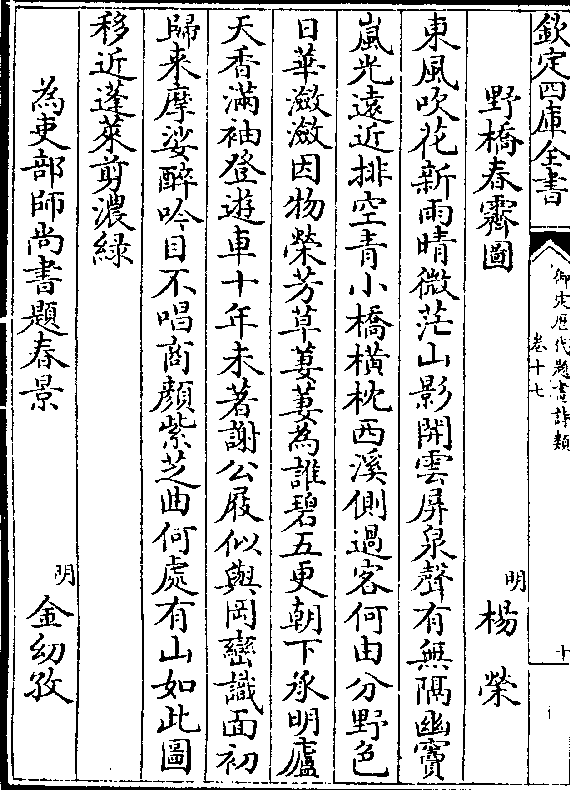 欽定四庫全書
御定歷代題畫詩類
卷十七
十
野橋春霽圖
明 楊榮
東風吹花新雨晴微茫山影開雲屏泉聲有無隔幽竇
嵐光遠近排空青小橋橫枕西溪側過客何由分野色
日華瀲瀲因物榮芳草萋萋為誰碧五更朝下承明廬
天香滿袖登遊車十年未著謝公屐似與岡巒識面初
歸來摩娑醉吟目不唱商顏紫芝曲何處有山如此圖
移近蓬萊剪濃綠
為吏部師尚書題春景
明 金幼孜